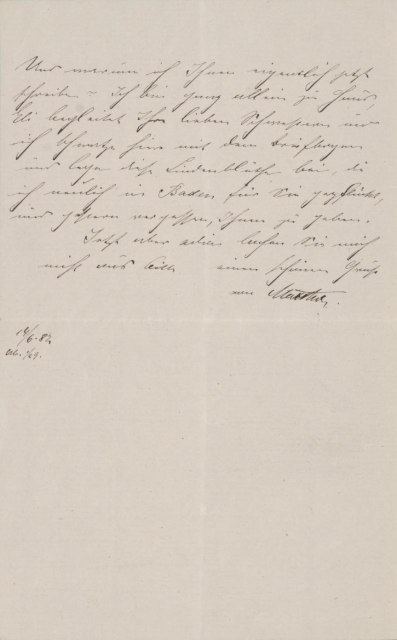 Und warum ich Ihnen eigentlich jetzt
schreibe? Ich bin ganz allein zu Haus,
Eli begleitet Ihre lieben Schwestern und
ich schwatze hier mit dem Briefbogen
und lege diese Lindenblüthe bei, die
ich neulich in Baden für Sie gepflückt,
und gestern vergessen, Ihnen zu geben.
Jetzt aber adieu lachen Sie mich
nicht aus bitte einen schönen Gruß
von Martha.
14/6. 82